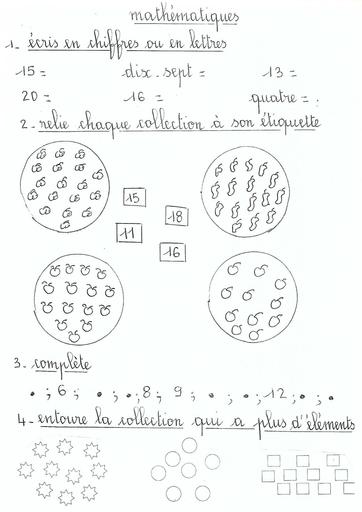 mathématiques
1- écris en chiffres ou en lettres
15 = dix-sept = 13 =
20 = 16 = quatre = .
2- relie chaque collection à son étiquette
15
18
11
16
3- complète
. ; 6 ; . ; . ; 8 ; 9 ; . ; . ; . ; 12 ; . ; .
4- entoure la collection qui a plus d'éléments